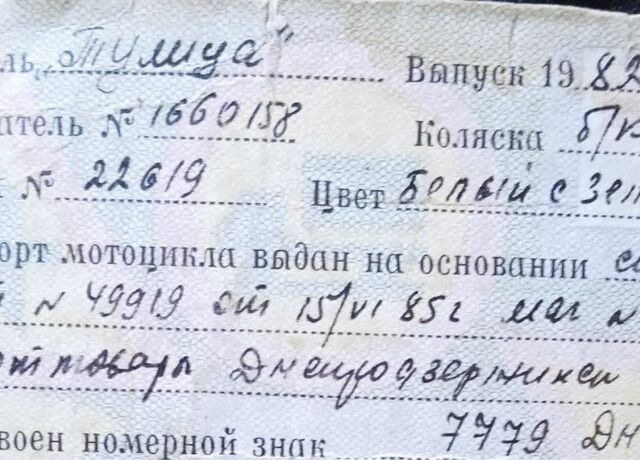 ль „Тулица" Выпуск 1982
атель № 1660158 Коляска б/к
№ 22619 Цвет Белый с зел
орт мотоцикла выдан на основании
N 49919 от 15/VI 85г маг N
товары Днепродзержинск
воен номерной знак 7779 Дн